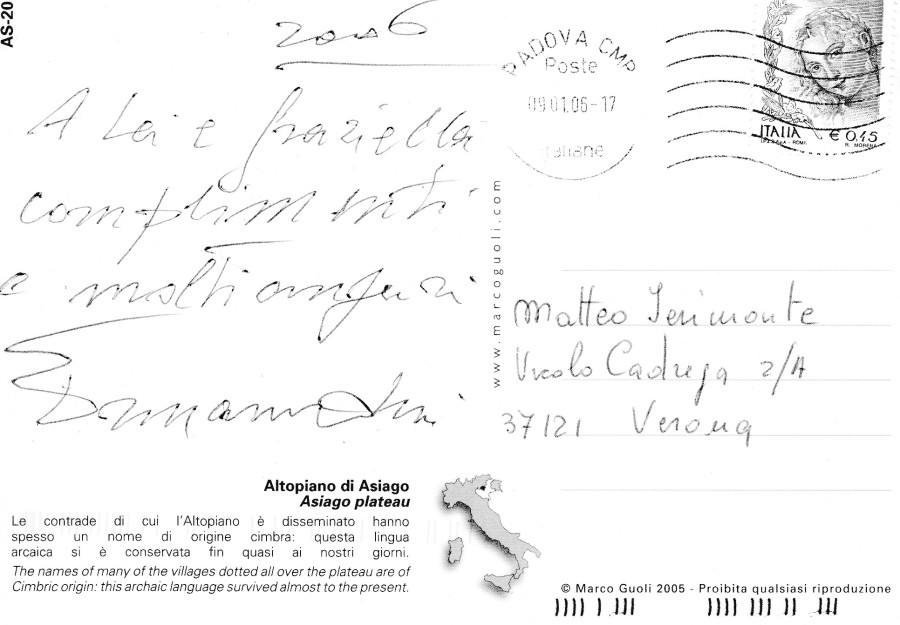 AS-20
2006
A Lei e Graziella
complimenti
e molti auguri
PADOVA CMP
Poste
09.01.06-17
Italiane
ITALIA € 0,45
I.P.Z.S. - ROMA R. MORENA
www.marcoguoli.com
Matteo
Vicolo Cadrega 2/A
37121 Verona
Altopiano di Asiago
Asiago plateau
Le contrade di cui l'Altopiano è disseminato hanno
spesso un nome di origine cimbra: questa lingua
arcaica si è conservata fin quasi ai nostri giorni.
The names of many of the villages dotted all over the plateau are of
Cimbric origin: this archaic language survived almost to the present.
© Marco Guoli 2005 - Proibita qualsiasi riproduzione